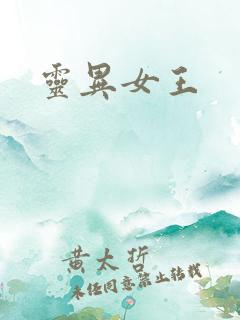 靈異女王
黃太哲
未經同意禁止轉載